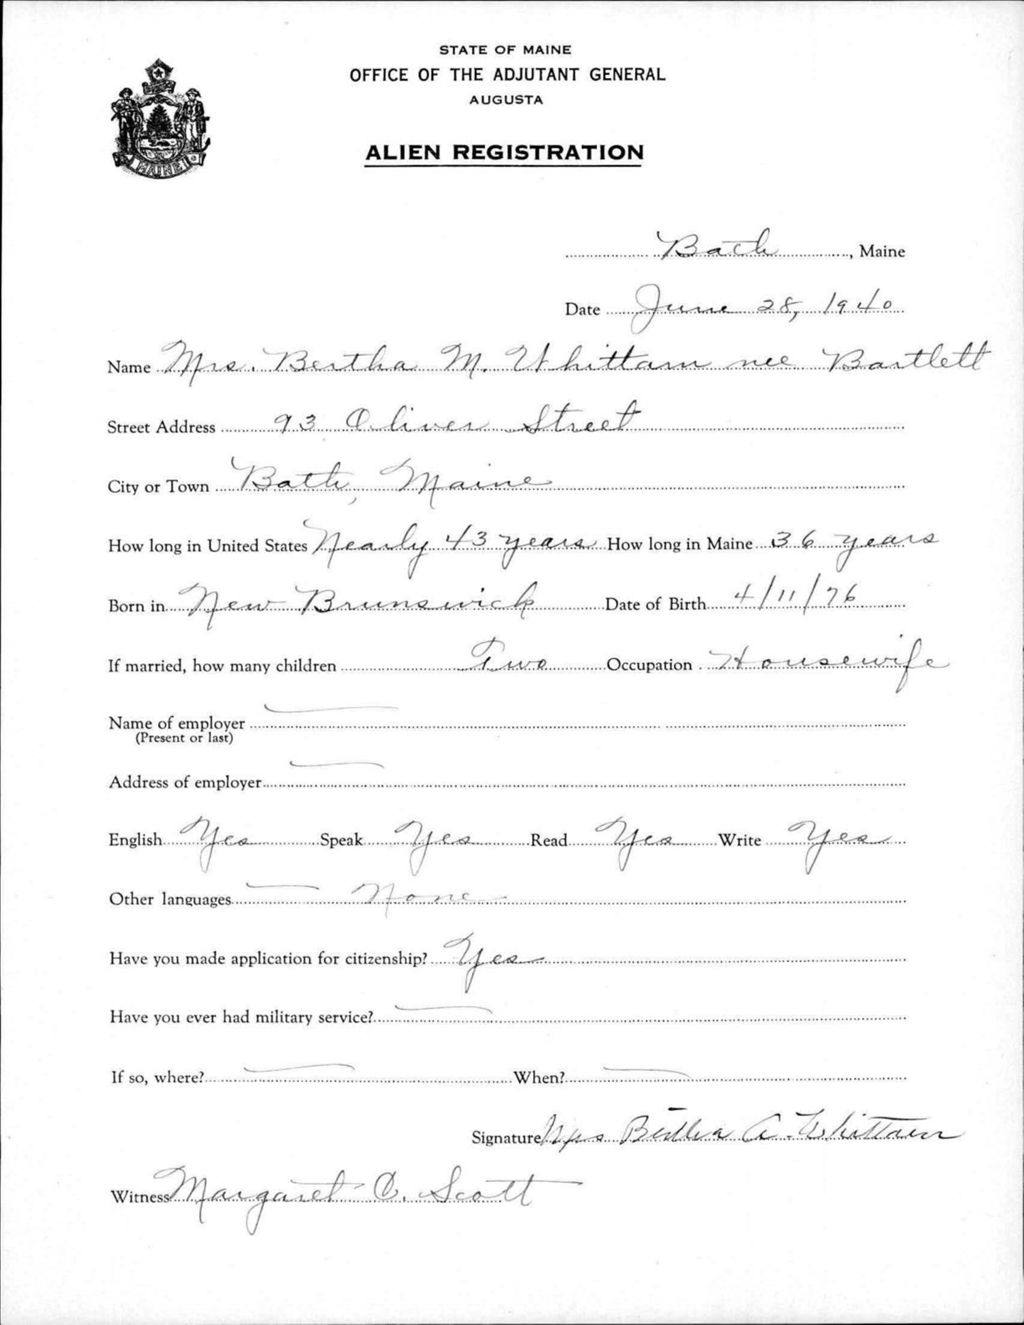 STATE OF MAINE
OFFICE OF THE ADJUTANT GENERAL
AUGUSTA
ALIEN REGISTRATION
MAINE
Bath, Maine
Date June 28, 1940
Name Mrs. Bertha M. Whittam nee Bartlett
Street Address 93 Oliver Street
City or Town Bath, Maine
How long in United States Nearly 43 years How long in Maine 36 years
Born in New Brunswick Date of Birth 4/11/76
If married, how many children Two Occupation Housewife
Name of employer
(Present or last)
Address of employer
English Yes Speak Yes Read Yes Write Yes
Other languages None
Have you made application for citizenship? Yes
Have you ever had military service?
If so, where? When?
Signature Mrs Bertha A. Whittam
Witness Margaret C. Scott